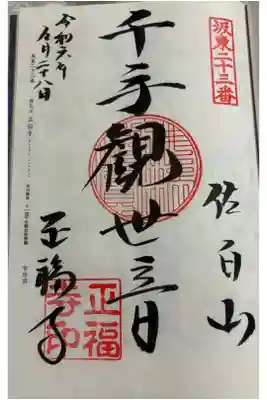 坂東二十三番
佐白山
千手観世音
正福寺
正福寺印
令和六年